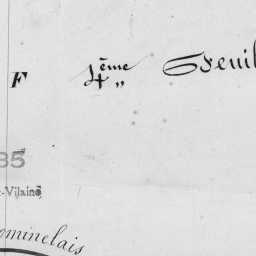 F 4ème Feuil
85
t-Vilaine
ominelais